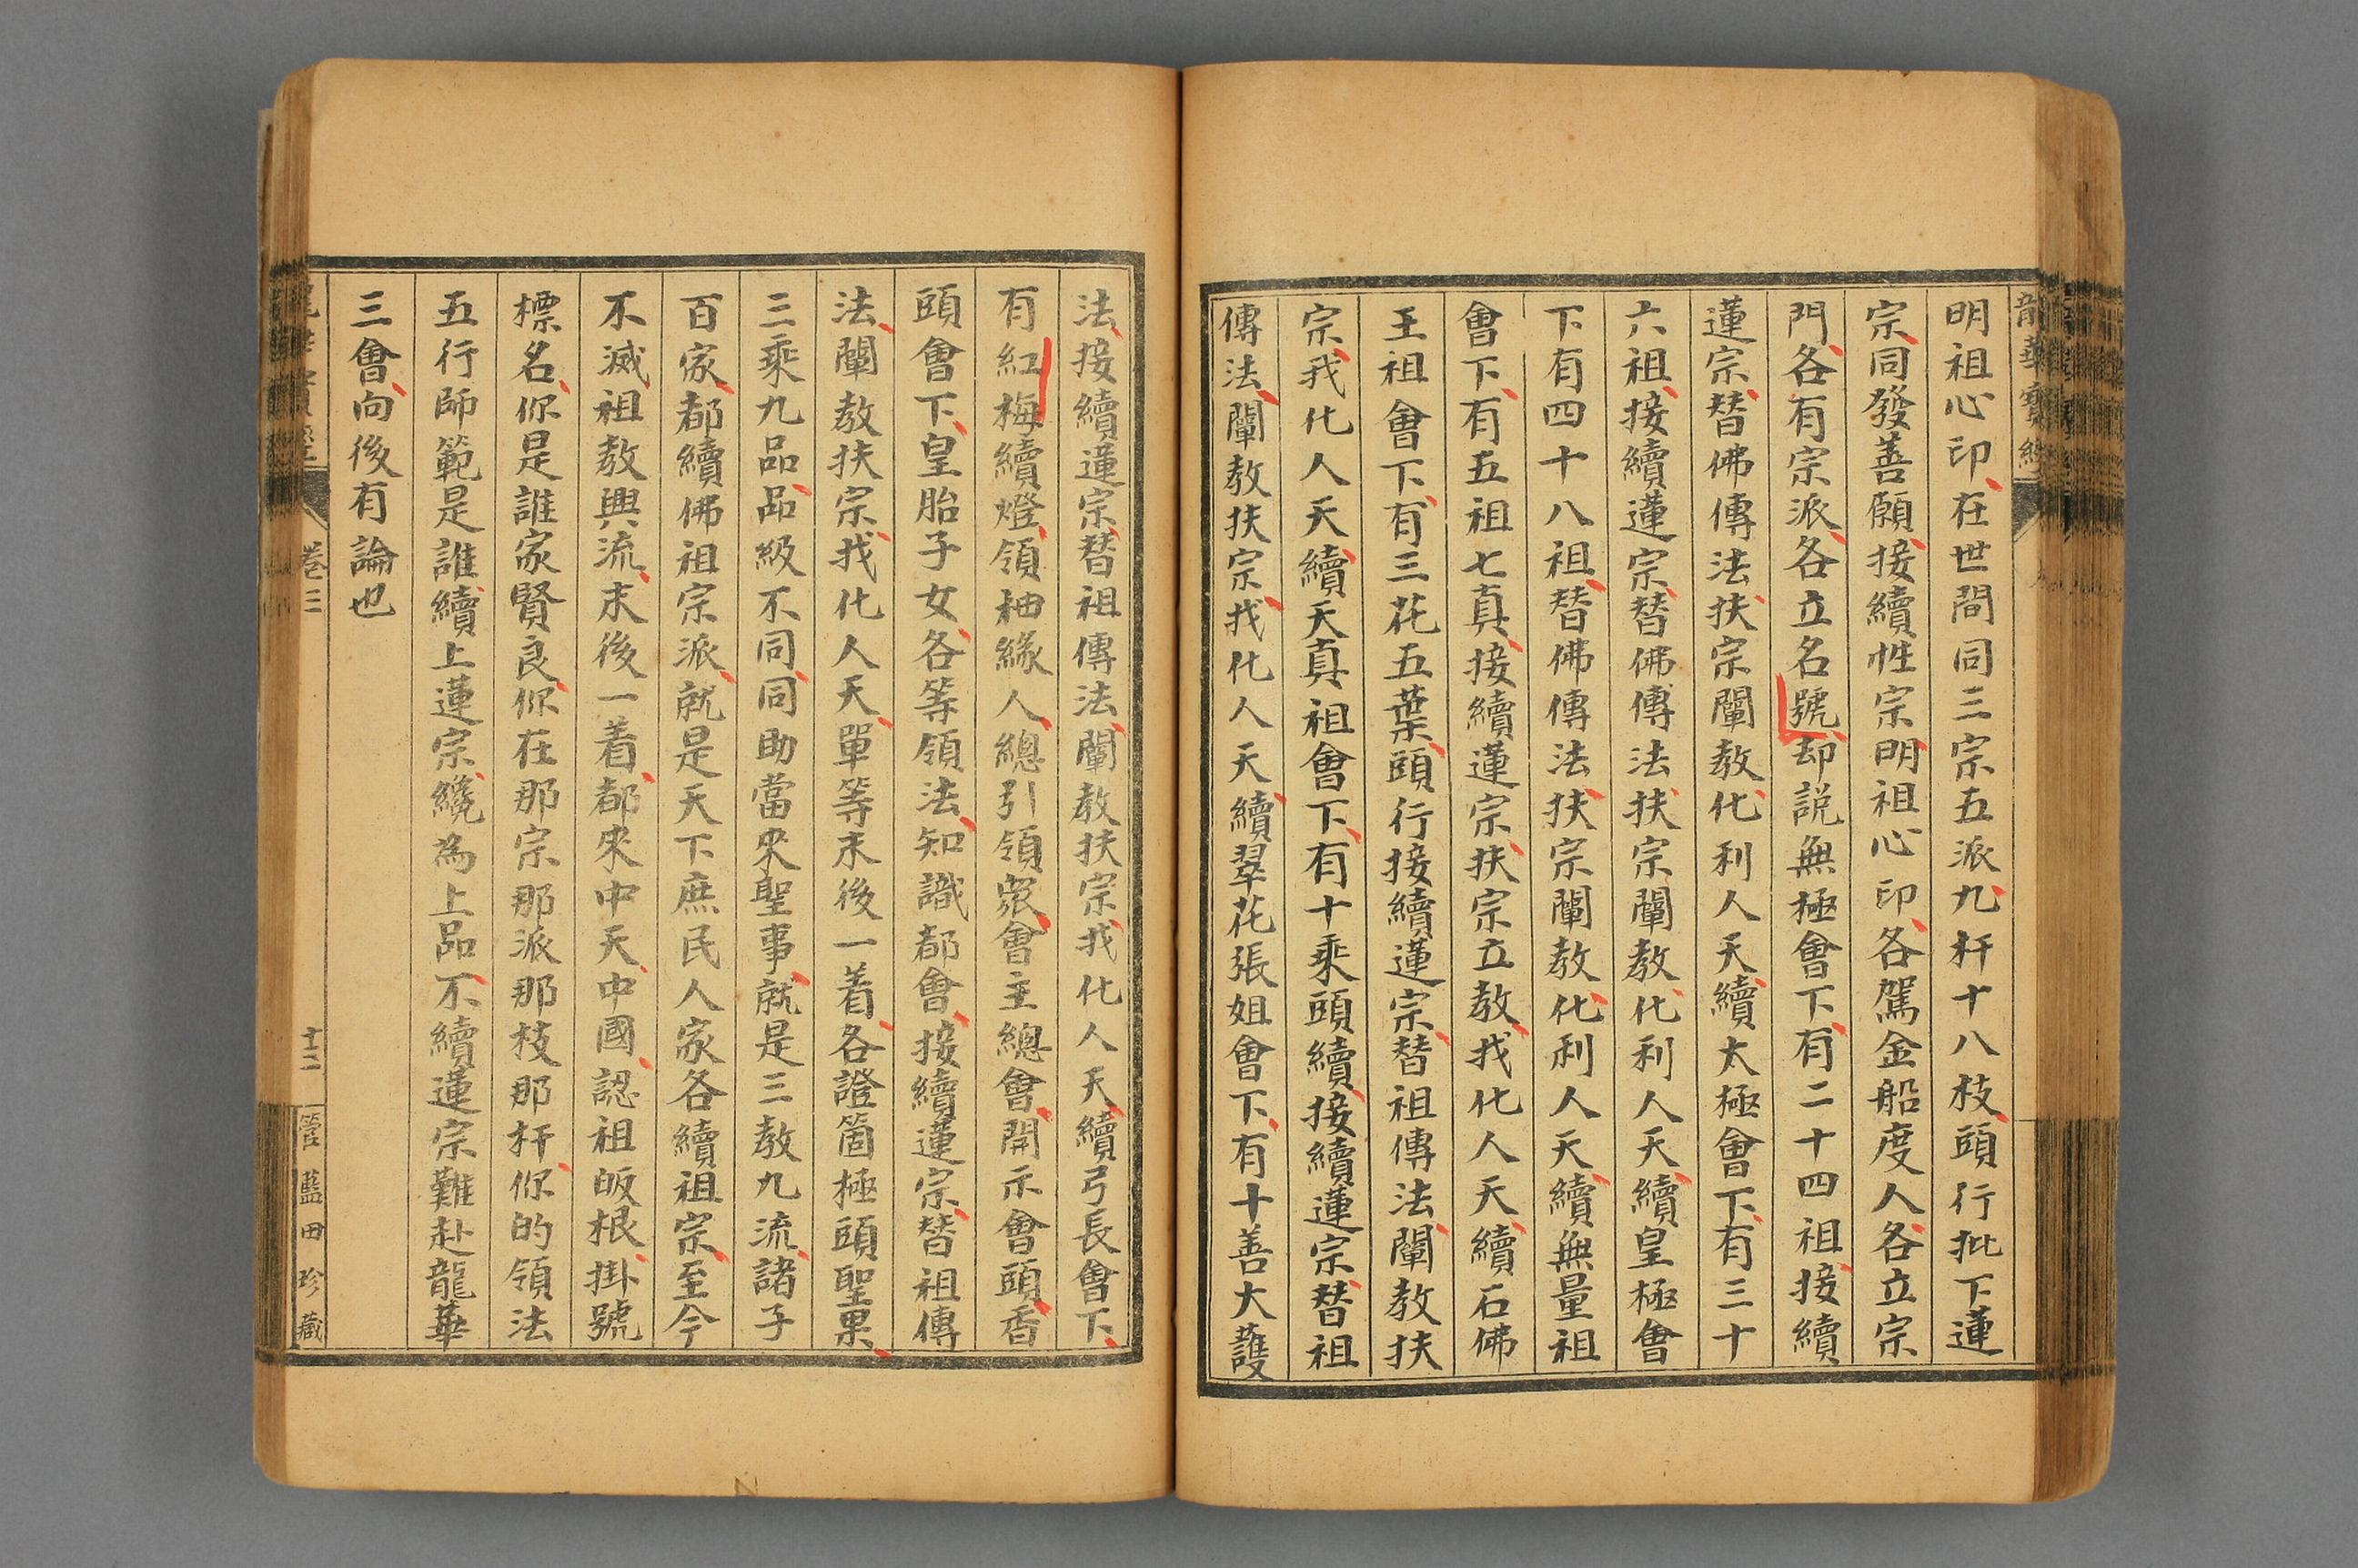 龍華寶經
明祖心印在世間同三宗五派九杆十八枝頭行批下蓮
宗同發善願接續性宗明祖心印各駕金船度人各立宗
門各有宗派各立名號却説無極會下有二十四祖接續
蓮宗替佛傳法扶宗闡教化利人天續太極會下有三十
六祖接續蓮宗替佛傳法扶宗闡教化利人天續皇極會
下有四十八祖替佛傳法扶宗闡教化利人天續無量祖
會下有五祖七真接續蓮宗扶宗立教找化人天續石佛
王祖會下有三花五葉頭行接續蓮宗替祖傳法闡教扶
宗我化人天續天真祖會下有十乘頭續接續蓮宗替祖
傳法闡教扶宗找化人天續翠花張姐會下有十善大護
法接續蓮宗替祖傳法闡教扶宗找化人天續弓長會下
有紅梅續燈領柚緣人總引領眾會主總會開示會頭香
頭會下皇胎子女各等領法知識都會接續蓮宗替祖傳
法闡教扶宗找化人天單等末後一着各證箇極頭聖果
三乘九品品級不同同助當來聖事就是三教九流諸子
百家都續佛祖宗派就是天下庶民人家各續祖宗至今
不滅祖教興流末後一着都來中天中國認祖皈根掛號
標名你是誰家賢良你在那宗那派那枝那杆你的領法
五行師範是誰續上蓮宗纔為上品不續蓮宗難赴龍華
三會向後有論也
卷三
十二
管藍田珍藏